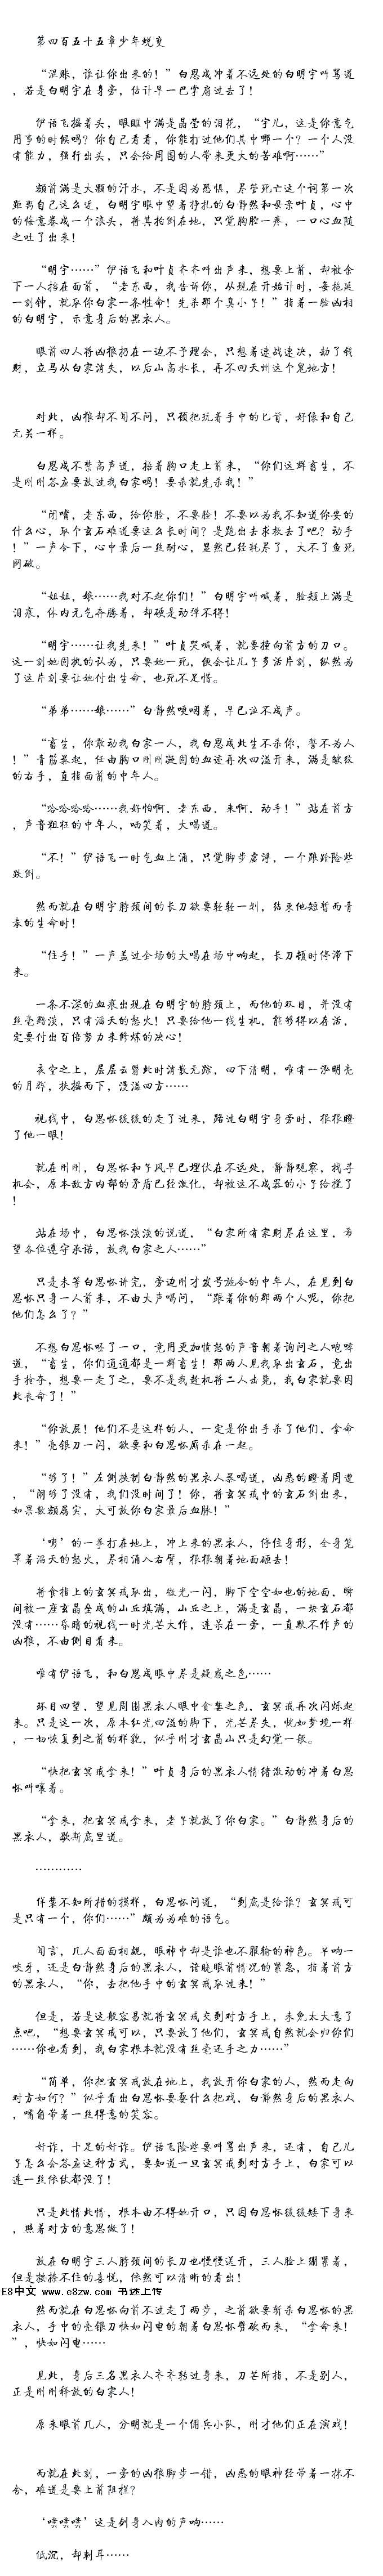 第四百五十五章少年蜕变
“混账，谁让你出来的！”白思成冲着不远处的白明宇叫骂道
，若是白明宇在身旁，估计早一巴掌扇过去了！
伊语飞摇着头，眼眶中满是晶莹的泪花，“宇儿，这是你意气
用事的时候吗？你自己看看，你能打过他们其中哪一个？一个人没
有能力，强行出头，只会给周围的人带来更大的苦难啊……”
额前满是大颗的汗水，不是因为恐惧，尽管死亡这个词第一次
距离自己这么近，白明宇眼中望着挣扎的白静然和母亲叶贞，心中
的倦意卷成一个浪头，将其拍倒在地，只觉胸腔一疼，一口心血随
之吐了出来！
“明宇……”伊语飞和叶贞齐齐叫出声来，想要上前，却被余
下一人挡在面前，“老东西，我告诉你，从现在开始计时，每拖延
一刻钟，就取你白家一条性命！先杀那个臭小子！”指着一脸凶相
的白明宇，示意身后的黑衣人。
眼前四人将凶狼扔在一边不予理会，只想着速战速决，劫了钱
财，立马从白家消失，以后山高水长，再不回天州这个鬼地方！
对此，凶狼却不闻不问，只顾把玩着手中的匕首，好像和自己
无关一样。
白思成不禁高声道，捂着胸口走上前来，“你们这群畜生，不
是刚刚答应要放过我白家吗！要杀就先杀我！”
“闭嘴，老东西，给你脸，不要脸！不要以为我不知道你耍的
什么心，取个玄石难道要这么长时间？是跑出去求救去了吧？动手
！”一声令下，心中最后一丝耐心，显然已经耗尽了，大不了鱼死
网破。
“姐姐，娘……我对不起你们！”白明宇叫喊着，脸颊上满是
泪痕，体内元气奔腾着，却硬是动弹不得！
“明宇……让我先来！”叶贞哭喊着，就要撞向前方的刀口。
这一刻她固执的认为，只要她一死，便会让儿子多活片刻，纵然为
了这片刻要让她付出生命，也死不足惜。
“弟弟……娘……”白静然哽咽着，早已泣不成声。
“畜生，你敢动我白家一人，我白思成此生不杀你，誓不为人
！”青筋暴起，任由胸口刚刚凝固的血迹再次四溢开来，满是皱纹
的右手，直指面前的中年人。
“哈哈哈哈……我好怕啊，老东西，来啊，动手！”站在前方
，声音粗狂的中年人，哂笑着，大喝道。
“不！”伊语飞一时气血上涌，只觉脚步虚浮，一个踉跄险些
跌倒。
然而就在白明宇脖颈间的长刀欲要轻轻一划，结束他短暂而青
春的生命时！
“住手！”一声盖过全场的大喝在场中响起，长刀顿时停滞下
来。
一条不深的血痕出现在白明宇的脖颈上，而他的双目，并没有
丝毫黯淡，只有滔天的怒火！只要给他一线生机，能够得以存活，
定要付出百倍努力来修炼的决心！
夜空之上，层层云翳此时消散无踪，四下清明，唯有一泓明亮
的月辉，扶摇而下，漫溢四方……
视线中，白思怀缓缓的走了过来，路过白明宇身旁时，狠狠瞪
了他一眼！
就在刚刚，白思怀和子风早已埋伏在不远处，静静观察，找寻
机会，原本敌方内部的矛盾已经激化，却被这不成器的小子给搅了
！
站在场中，白思怀淡淡的说道，“白家所有家财尽在这里，希
望各位遵守承诺，放我白家之人……”
只是未等白思怀讲完，旁边刚才发号施令的中年人，在见到白
思怀只身一人前来，不由大声喝问，“跟着你的那两个人呢，你把
他们怎么了？”
不想白思怀呸了一口，竟用更加愤怒的声音朝着询问之人咆哮
道，“畜生，你们通通都是一群畜生！那两人见我取出玄石，竟出
手抢夺，想要一走了之，要不是我趁机将二人击毙，我白家就要因
此丧命了！”
“你放屁！他们不是这样的人，一定是你出手杀了他们，拿命
来！”亮银刀一闪，欲要和白思怀厮杀在一起。
“够了！”左侧挟制白静然的黑衣人暴喝道，凶恶的瞪着周遭
，“闹够了没有，我们没时间了！你，将玄冥戒中的玄石倒出来，
如果数额属实，大可放你白家最后血脉！”
‘嘭’的一拳打在地上，冲上来的黑衣人，停住身形，全身笼
罩着滔天的怒火，尽相涌入右臂，狠狠朝着地面砸去！
将食指上的玄冥戒取出，微光一闪，脚下空空如也的地面，瞬
间被一座玄晶垒成的山丘填满，山丘之上，满是玄晶，一块玄石都
没有……昏暗的视线一时光芒大作，连呆在一旁，一直默不作声的
凶狼，不由侧目看来。
唯有伊语飞，和白思成眼中尽是疑惑之色……
环目四望，望见周围黑衣人眼中贪婪之色，玄冥戒再次闪烁起
来。只是这一次，原本红光四溢的脚下，光芒尽失，恍如梦境一样
，一切恢复到之前的样貌，似乎刚才玄晶山只是幻觉一般。
“快把玄冥戒拿来！”叶贞身后的黑衣人情绪激动的冲着白思
怀叫嚷着。
“拿来，把玄冥戒拿来，老子就放了你白家。”白静然身后的
黑衣人，歇斯底里道。
…………
佯装不知所措的模样，白思怀问道，“到底是给谁？玄冥戒可
是只有一个，你们……”颇为为难的语气。
闻言，几人面面相觑，眼神中却是谁也不服输的神色。半响一
咬牙，还是白静然身后的黑衣人，谙晓眼前情况的紧急，指着前方
的黑衣人，“你，去把他手中的玄冥戒取过来！”
但是，若是这般容易就将玄冥戒交到对方手上，未免太大意了
点吧，“想要玄冥戒可以，只要放了他们，玄冥戒自然就会归你们
……你也看到，我白家根本就没有丝毫还手之力……”
“简单，你把玄冥戒放在地上，我放开你白家的人，然而走向
对方如何？”似乎看出白思怀要耍什么把戏，白静然身后的黑衣人
，嘴角带着一丝得意的笑容。
好诈，十足的奸诈。伊语飞险些要叫骂出声来，还有，自己儿
子怎么会答应这种方式，要知道一旦玄冥戒到对方手上，白家可以
连一丝倚仗都没了！
只是此情此情，根本由不得她开口，只因白思怀缓缓矮下身来
，照着对方的意思做了！
放在白明宇三人脖颈间的长刀也慢慢送开，三人脸上绷紧着，
但是掩捺不住的喜悦，依然可以清晰的看出！
E8中文 www.e8zw.com 书迷上传
然而就在白思怀向前不过走了两步，之前欲要所杀白思怀的黑
衣人，手中的亮银刀快如闪电的朝着白思怀劈砍而来，“拿命来！
”，快如闪电……
见此，身后三名黑衣人齐齐转过身来，刀芒所指，不是别人，
正是刚刚释放的白家人！
原来眼前几人，分明就是一个佣兵小队，刚才他们正在演戏！
而就在此刻，一旁的凶狼脚步一错，凶恶的眼神经带着一抹不
舍，难道是要上前阻拦？
‘噗噗噗’这是剑身入肉的声响……
低沉，却刺耳……